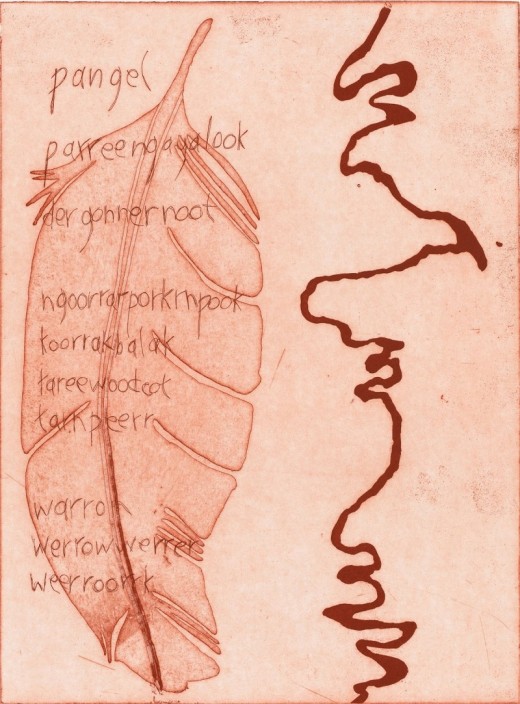 pangel
parreengayalook
dergonnernoot
ngoorrarporkrnpook
toorrakbalak
tareewoodcot
tarkpeerr
warron
werrowwerrer
weerroorrk